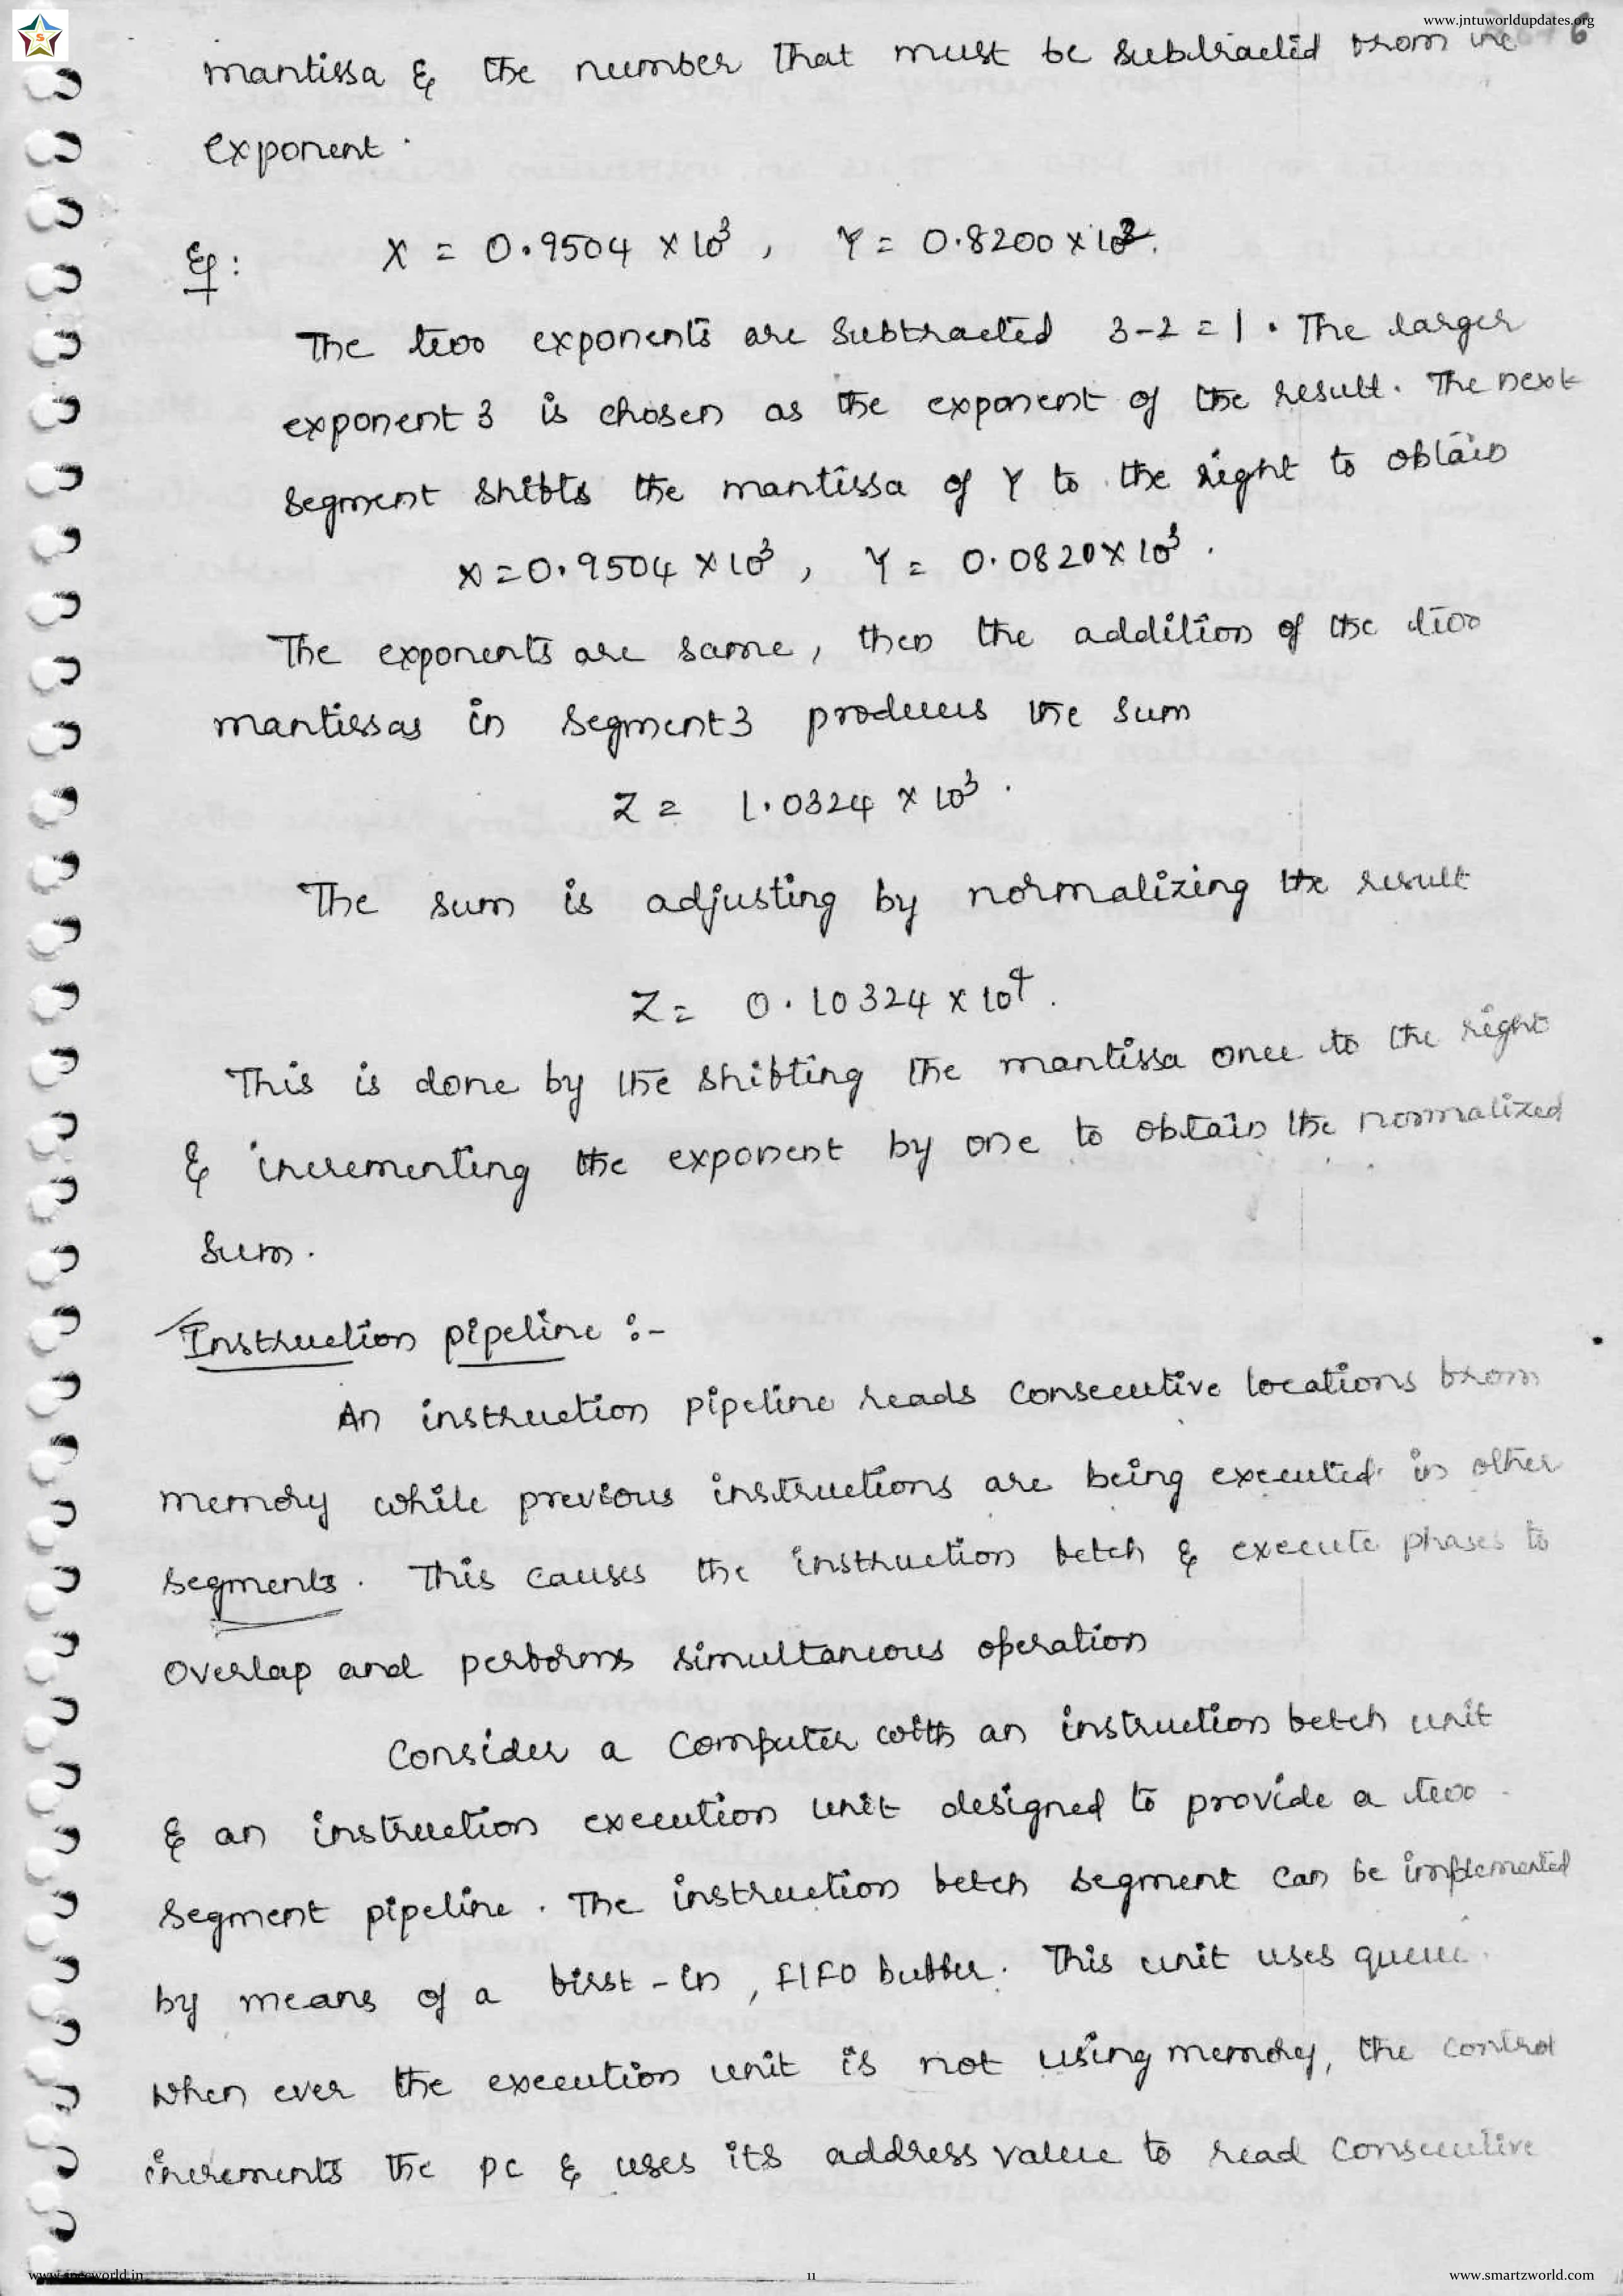 www.jntuworldupdates.org
mantissa & the number that must be subtracted from the
6
exponent.
Eg: X = 0.9504 × 10³, Y = 0.8200 × 10².
The two exponents are subtracted 3-2=1. The larger
exponent 3 is chosen as the exponent of the result. The next
segment shifts the mantissa of Y to the right to obtain
X=0.9504 × 10³, Y = 0.0820 × 10³.
The exponents are same, then the addition of the two
mantissas in segment3 produces the sum
Z = 1.0324 × 10³.
The sum is adjusting by normalizing the result
Z = 0.10324 × 10⁴.
This is done by the shifting the mantissa once to the right
& incrementing the exponent by one to obtain the normalized
sum.
Instruction pipeline :-
An instruction pipeline reads consecutive locations from
memory while previous instructions are being executed in other
segments. This causes the instruction fetch & execute phases to
overlap and performs simultaneous operation
Consider a computer with an instruction fetch unit
& an instruction execution unit designed to provide a two
segment pipeline. The instruction fetch segment can be implemented
by means of a first-in, FIFO buffer. This unit uses queue.
When ever the execution unit is not using memory, the control
increments the pc & uses its address value to read consecutive
11
www.smartzworld.com